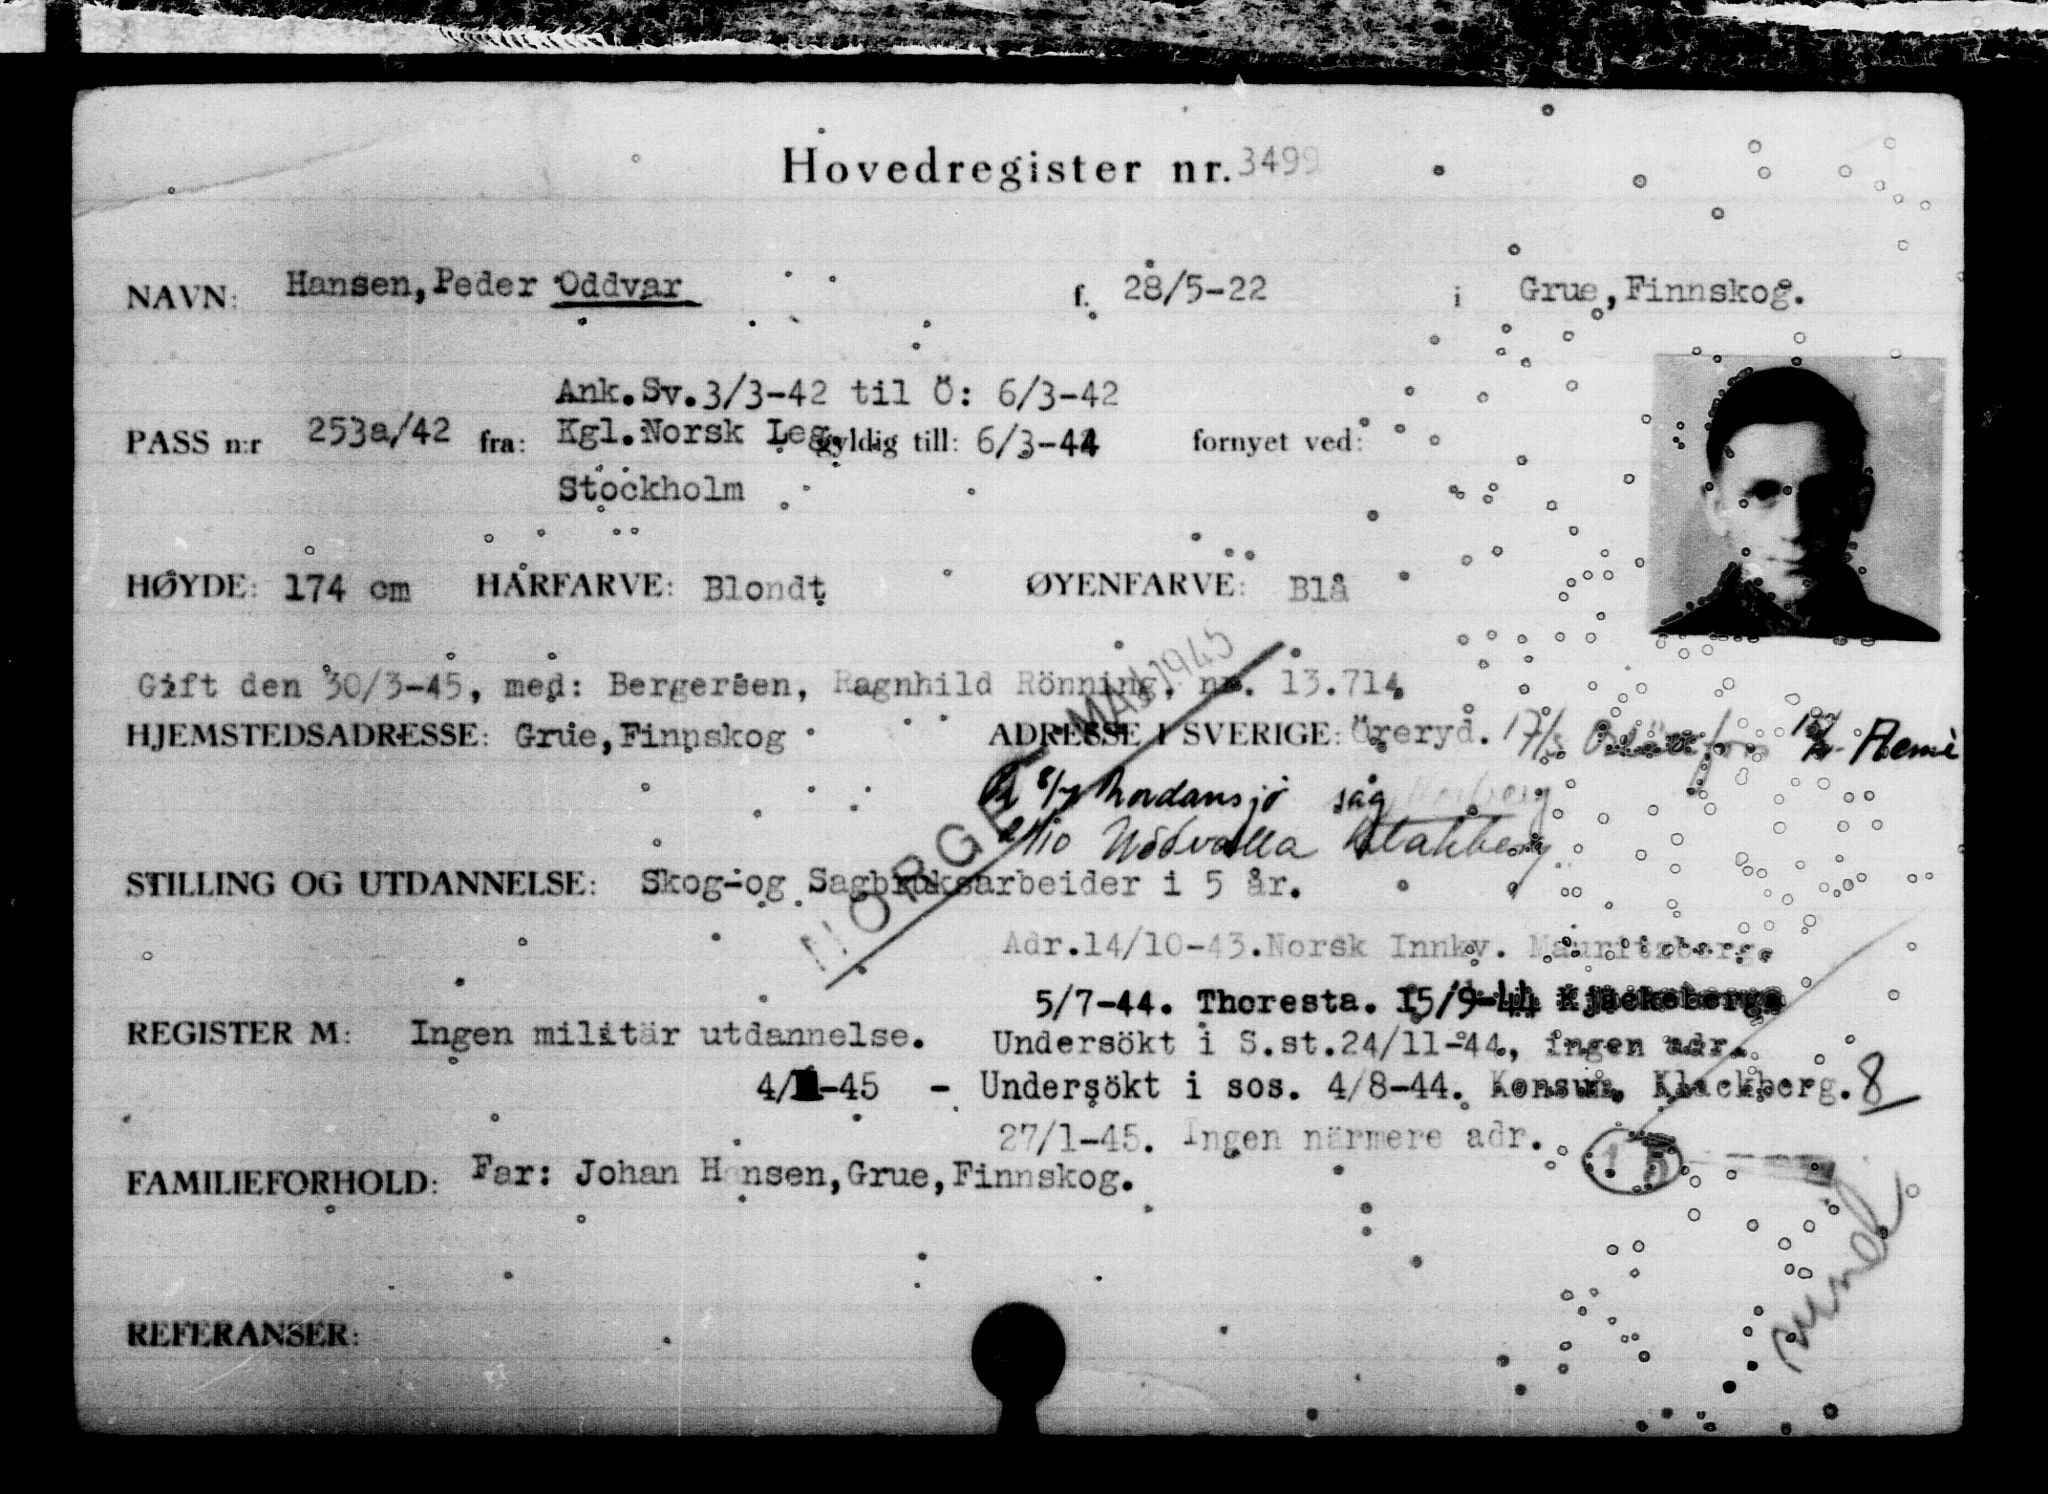 Hovedregister nr. 3499
NAVN: Hansen, Peder Oddvar f. 28/5-22 i Grue, Finnskog.
Ank. Sv. 3/3-42 til Ö: 6/3-42
PASS n:r 253a/42 fra: Kgl. Norsk Leg. gyldig till: 6/3-44 fornyet ved:
Stockholm
HØYDE: 174 cm HÅRFARVE: Blondt ØYENFARVE: Blå
Gift den 30/3-45, med: Bergersen, Ragnhild Rönning, nr. 13.714.
HJEMSTEDSADRESSE: Grue, Finnskog ADRESSE I SVERIGE: Öreryd. 17/3
8/7 såg
Uddvalla
NORGE MAI 1945
STILLING OG UTDANNELSE: Skog- og Sagbruksarbeider i 5 år.
Adr. 14/10-43. Norsk Innkv. Mauritzberg.
5/7-44. Thoresta. 15/9-44 Kjäckeberga
REGISTER M: Ingen militär utdannelse. Undersökt i S.st. 24/11-44, ingen adr.
-45 - Undersökt i sos. 4/8-44. Konsum, Klackberg. 8
27/1-45. Ingen närmere adr.
15
FAMILIEFORHOLD: Far: Johan Hansen, Grue, Finnskog.
REFERANSER: